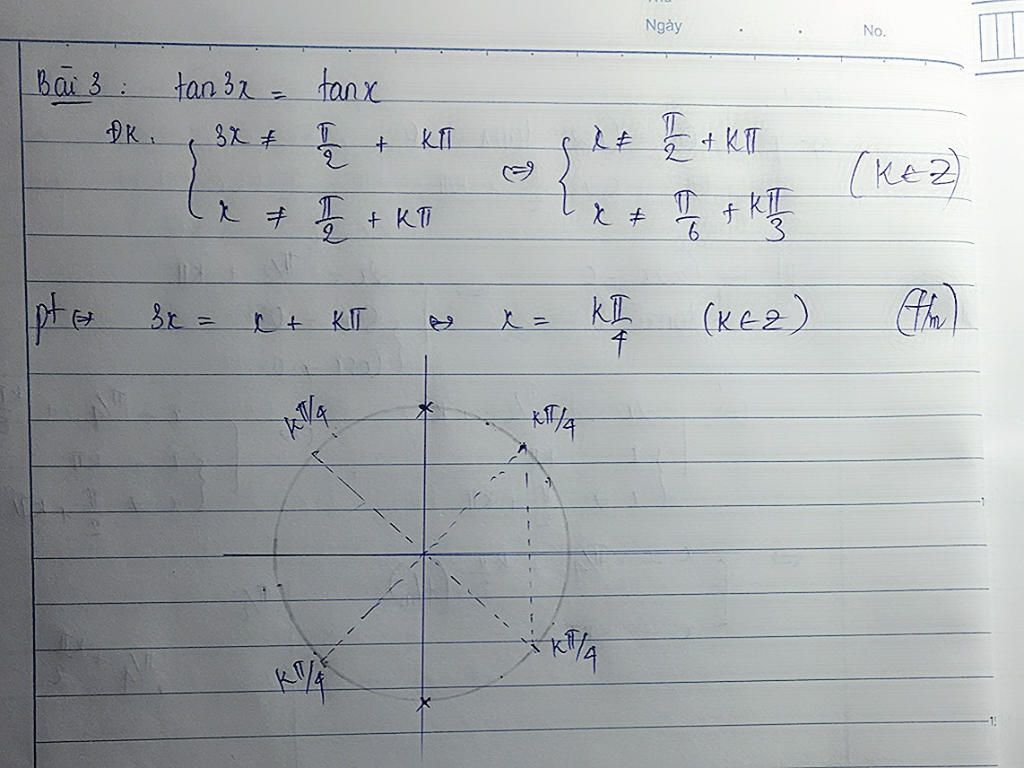 Ngày . . No.
Bài 3 : tan3x = tanx
ĐK. { 3x ≠ π/2 + kπ ⇔ { x ≠ π/2 + kπ (k ∈ Z)
x ≠ π/2 + kπ x ≠ π/6 + kπ/3
pt ⇔ 3x = x + kπ ⇔ x = kπ/4 (k ∈ Z) (t/m)
kπ/4 kπ/4
kπ/4 kπ/4